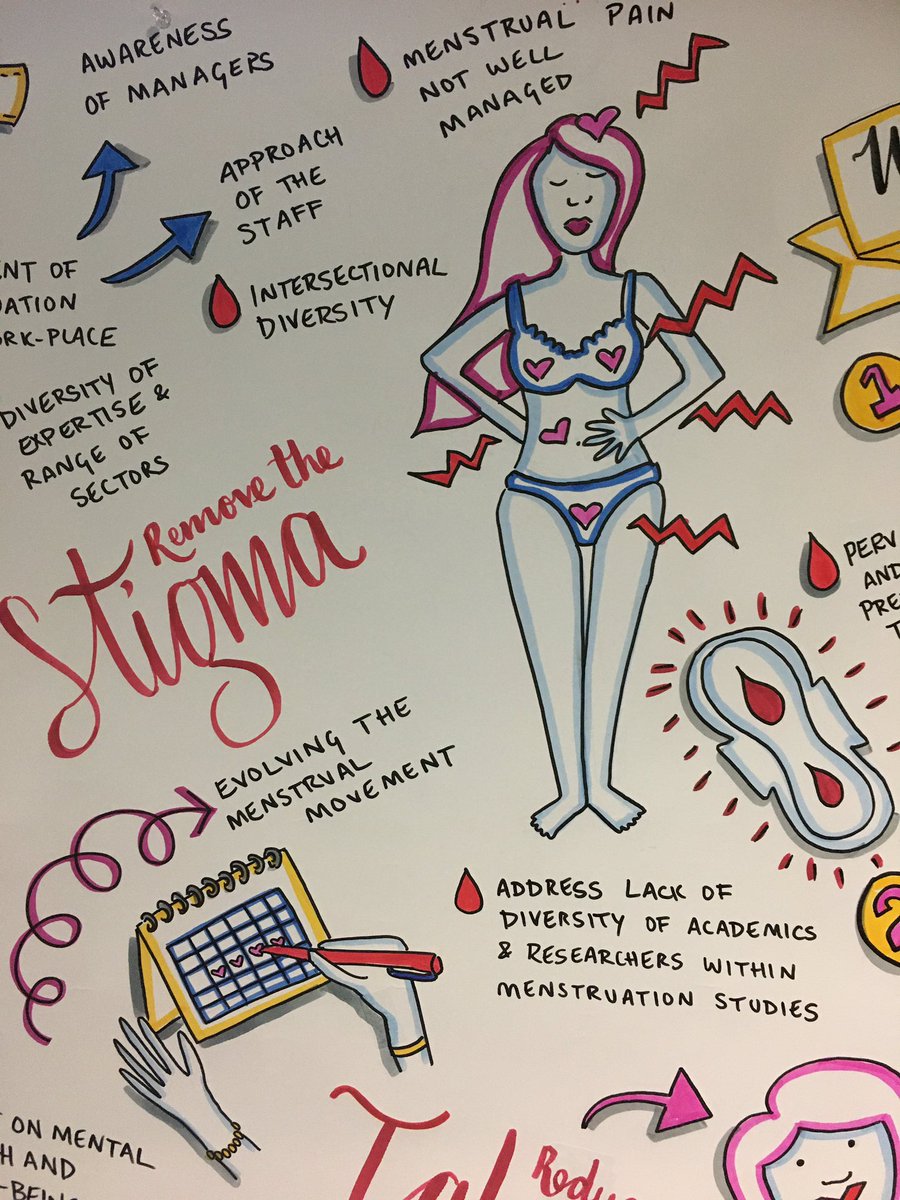 AWARENESS
OF MANAGERS
MENSTRUAL PAIN
NOT WELL
MANAGED
APPROACH
OF THE
STAFF
OF
INTERSECTIONAL
DIVERSITY
DIVERSITY OF
EXPERTISE &
RANGE OF
SECTORS
Remove the
Stigma
1
AND
EVOLVING THE
MENSTRUAL
MOVEMENT
ADDRESS LACK OF
DIVERSITY OF ACADEMICS
& RESEARCHERS WITHIN
MENSTRUATION STUDIES
2
ON MENTAL
AND